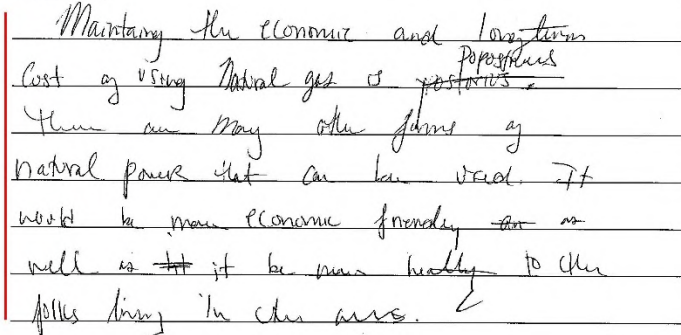 Maintaing the economic and longterm
Cost of using Natural gas is Poposterus
There are many other forms of
natural power that can be used. It
would be more economic friendly as
well as it be more healthy to the
folks living in the area.